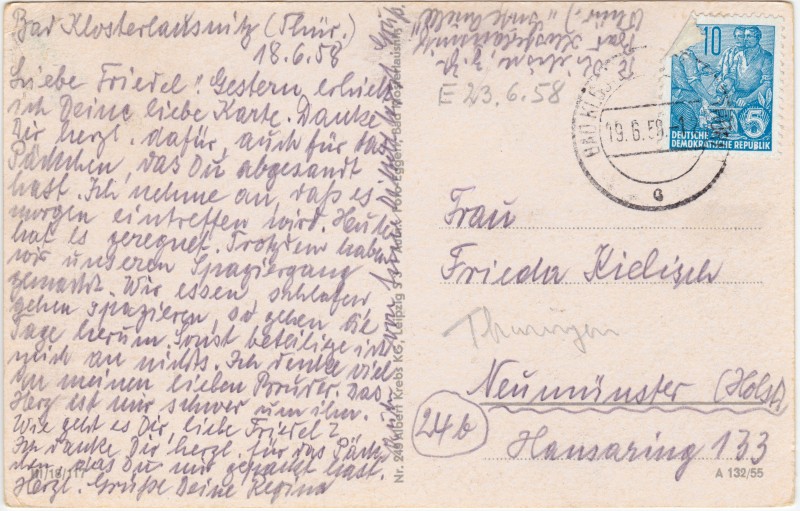 Bad Klosterlausnitz (Thür.)
18.6.58
Liebe Friedel! Gestern erhielt
ich Deine liebe Karte. Danke
Dir herzl. dafür, auch für das
Päckchen, das Du abgesandt
hast. Ich nehme an, daß es
morgen eintreffen wird. Heute
hat es geregnet. Trotzdem haben
wir unseren Spaziergang
gemacht. Wir essen, schlafen
gehen spazieren, so gehen die
Tage herum. Sonst beteilige ich
mich an nichts. Ich denke viel
an meinen lieben Bruder. Das
Herz ist mir schwer um ihn.
Wie geht es Dir, liebe Friedel?
Ich danke Dir herzl. für das Päck
chen, das Du mir gepackt hast.
Herzl. Grüße Deine Regina
III/18/117
Nr. 249 Albert Krebs KG, Leipzig S 3 Aufn. Foto-Eggert, Bad Klosterlausnitz
Bad Klosterlausnitz
(Thür.)
E 23.6.58
BAD KLOS
19.6.58
c
10
5
DEUTSCHE
DEMOKRATISCHE REPUBLIK
Frau
Frieda Kielisch
Thüringen
24b
Neumünster (Holst)
Hansaring 133
A 132/55